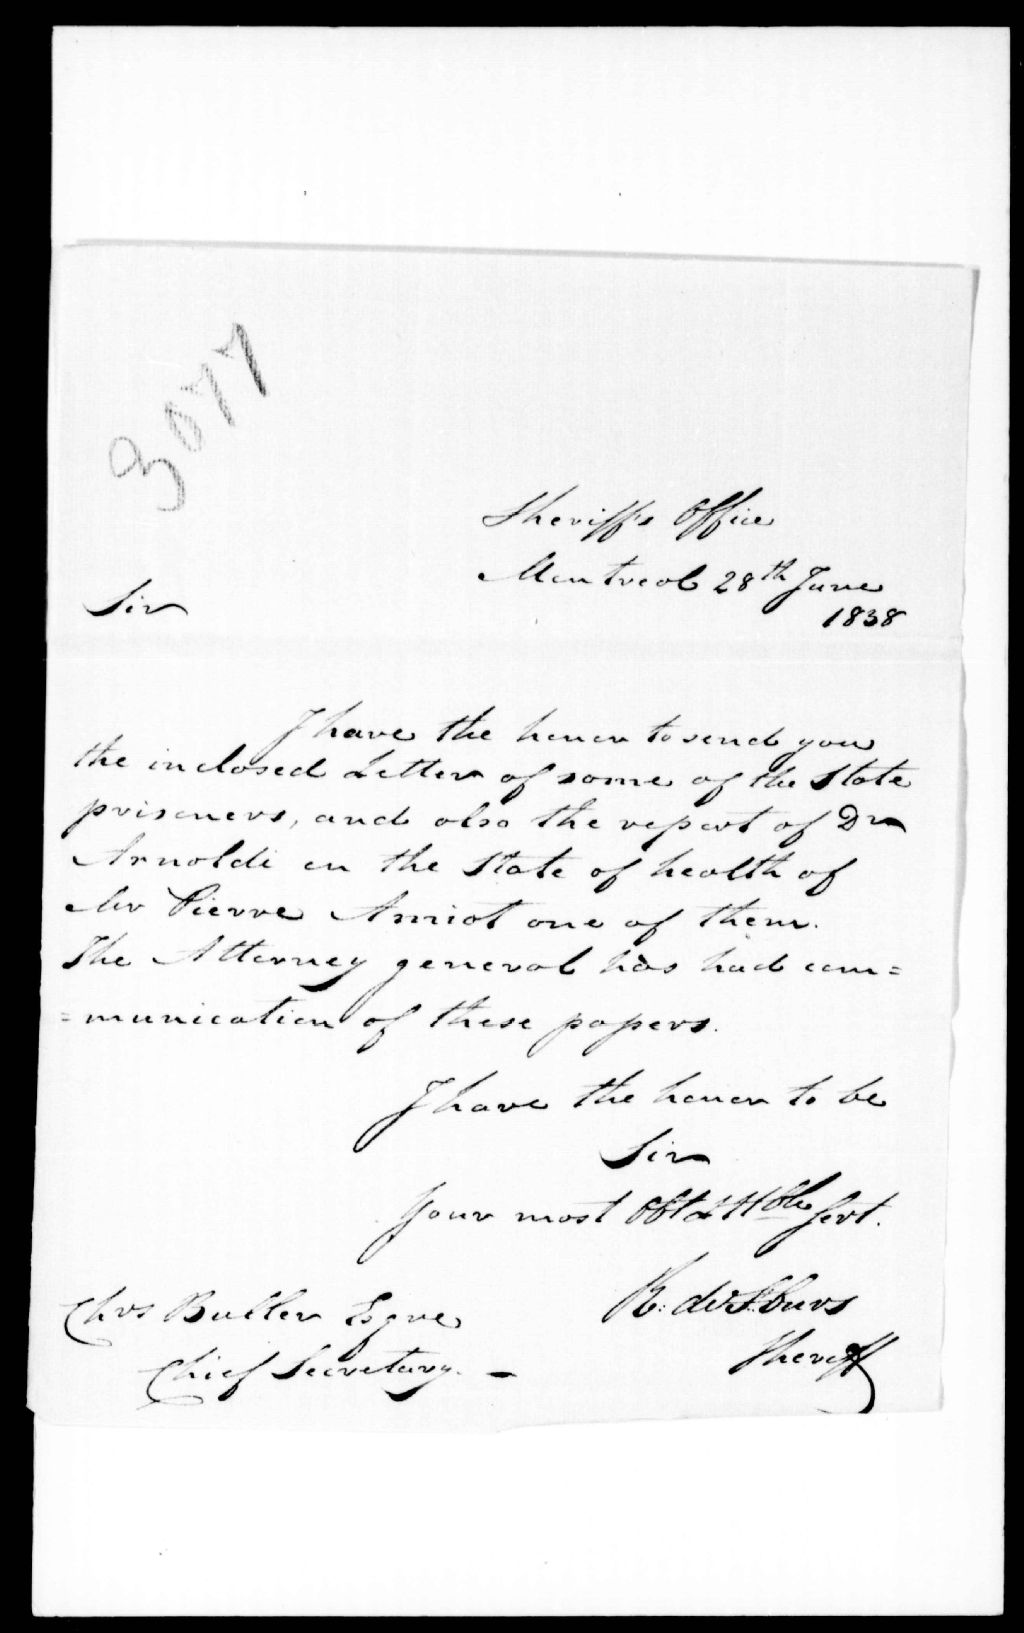 3077
Sheriff's Office
Montreal 28th June
1838
Sir
I have the honor to send you
the inclosed Letter of some of the State
prisoners, and also the report of Dr
Arnoldi on the State of health of
Mr Pierre Amiot one of them.
The Attorney general has had com=
=munication of these papers.
I have the honor to be
Sir
Your most Obt & Hble Servt.
R: de St Ours
Sheriff
Chrs Buller Esqre
Chief Secretary. –